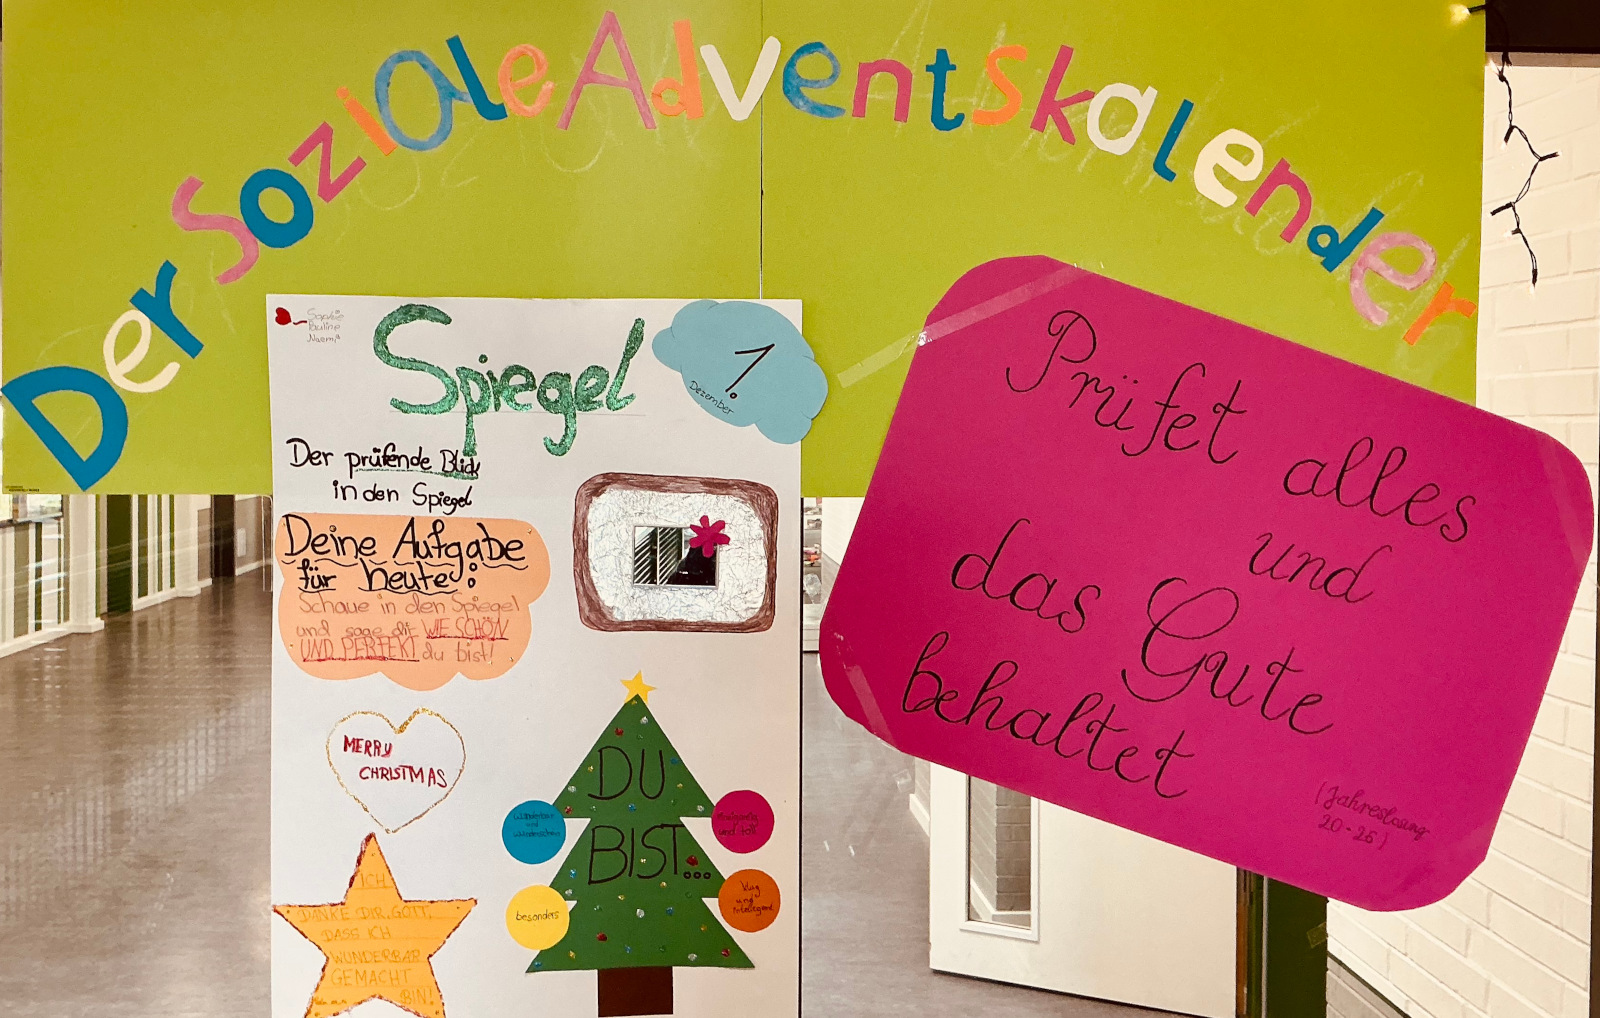 Der Soziale Adventskalender
Sophie
Pauline
Naemi
Spiegel
1.
Dezember
Der prüfende Blick
in den Spiegel
Deine Aufgabe
für heute:
Schaue in den Spiegel
und sage dir WIE SCHÖN
UND PERFEKT du bist!
MERRY
CHRISTMAS
ICH
DANKE DIR, GOTT,
DASS ICH
WUNDERBAR
GEMACHT
BIN!
DU
BIST...
wunderbar
und
wunderschön
und toll
besonders
klug
und
intelligent
Prüfet alles
und
das Gute
behaltet
(Jahreslosung
20-25)